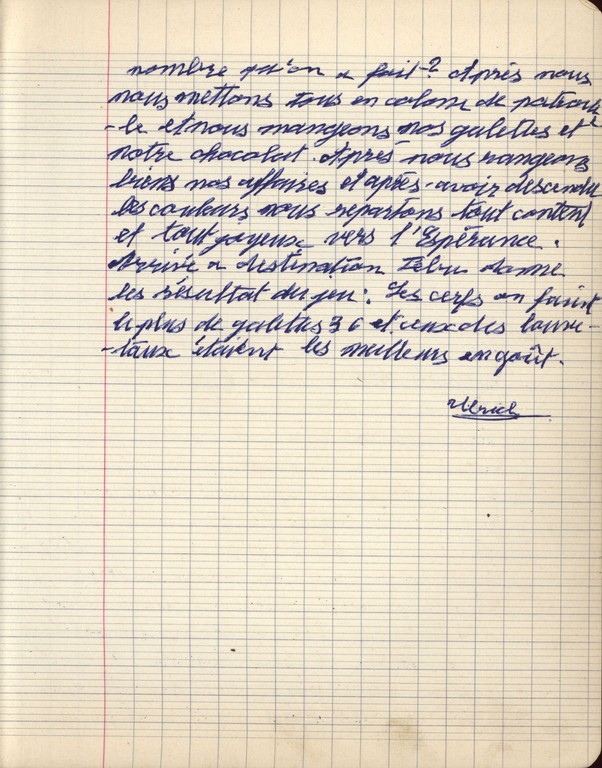 nombre qu'on a fait? Après nous
nous mettons tous en colone de patrouil
-le et nous mangeons nos galettes et
notre chocolat. Après nous rangeons
biens nos affaires et après avoir descendu
les couleurs nous repartons tout content
et tout joyeux vers l'Espérance.
Arrivé a destination Zébu donne
les résultat du jeu: Les cerfs on fait
le plus de galettes 36 et ceux des louve-
-taux étaient les meilleurs en goût.